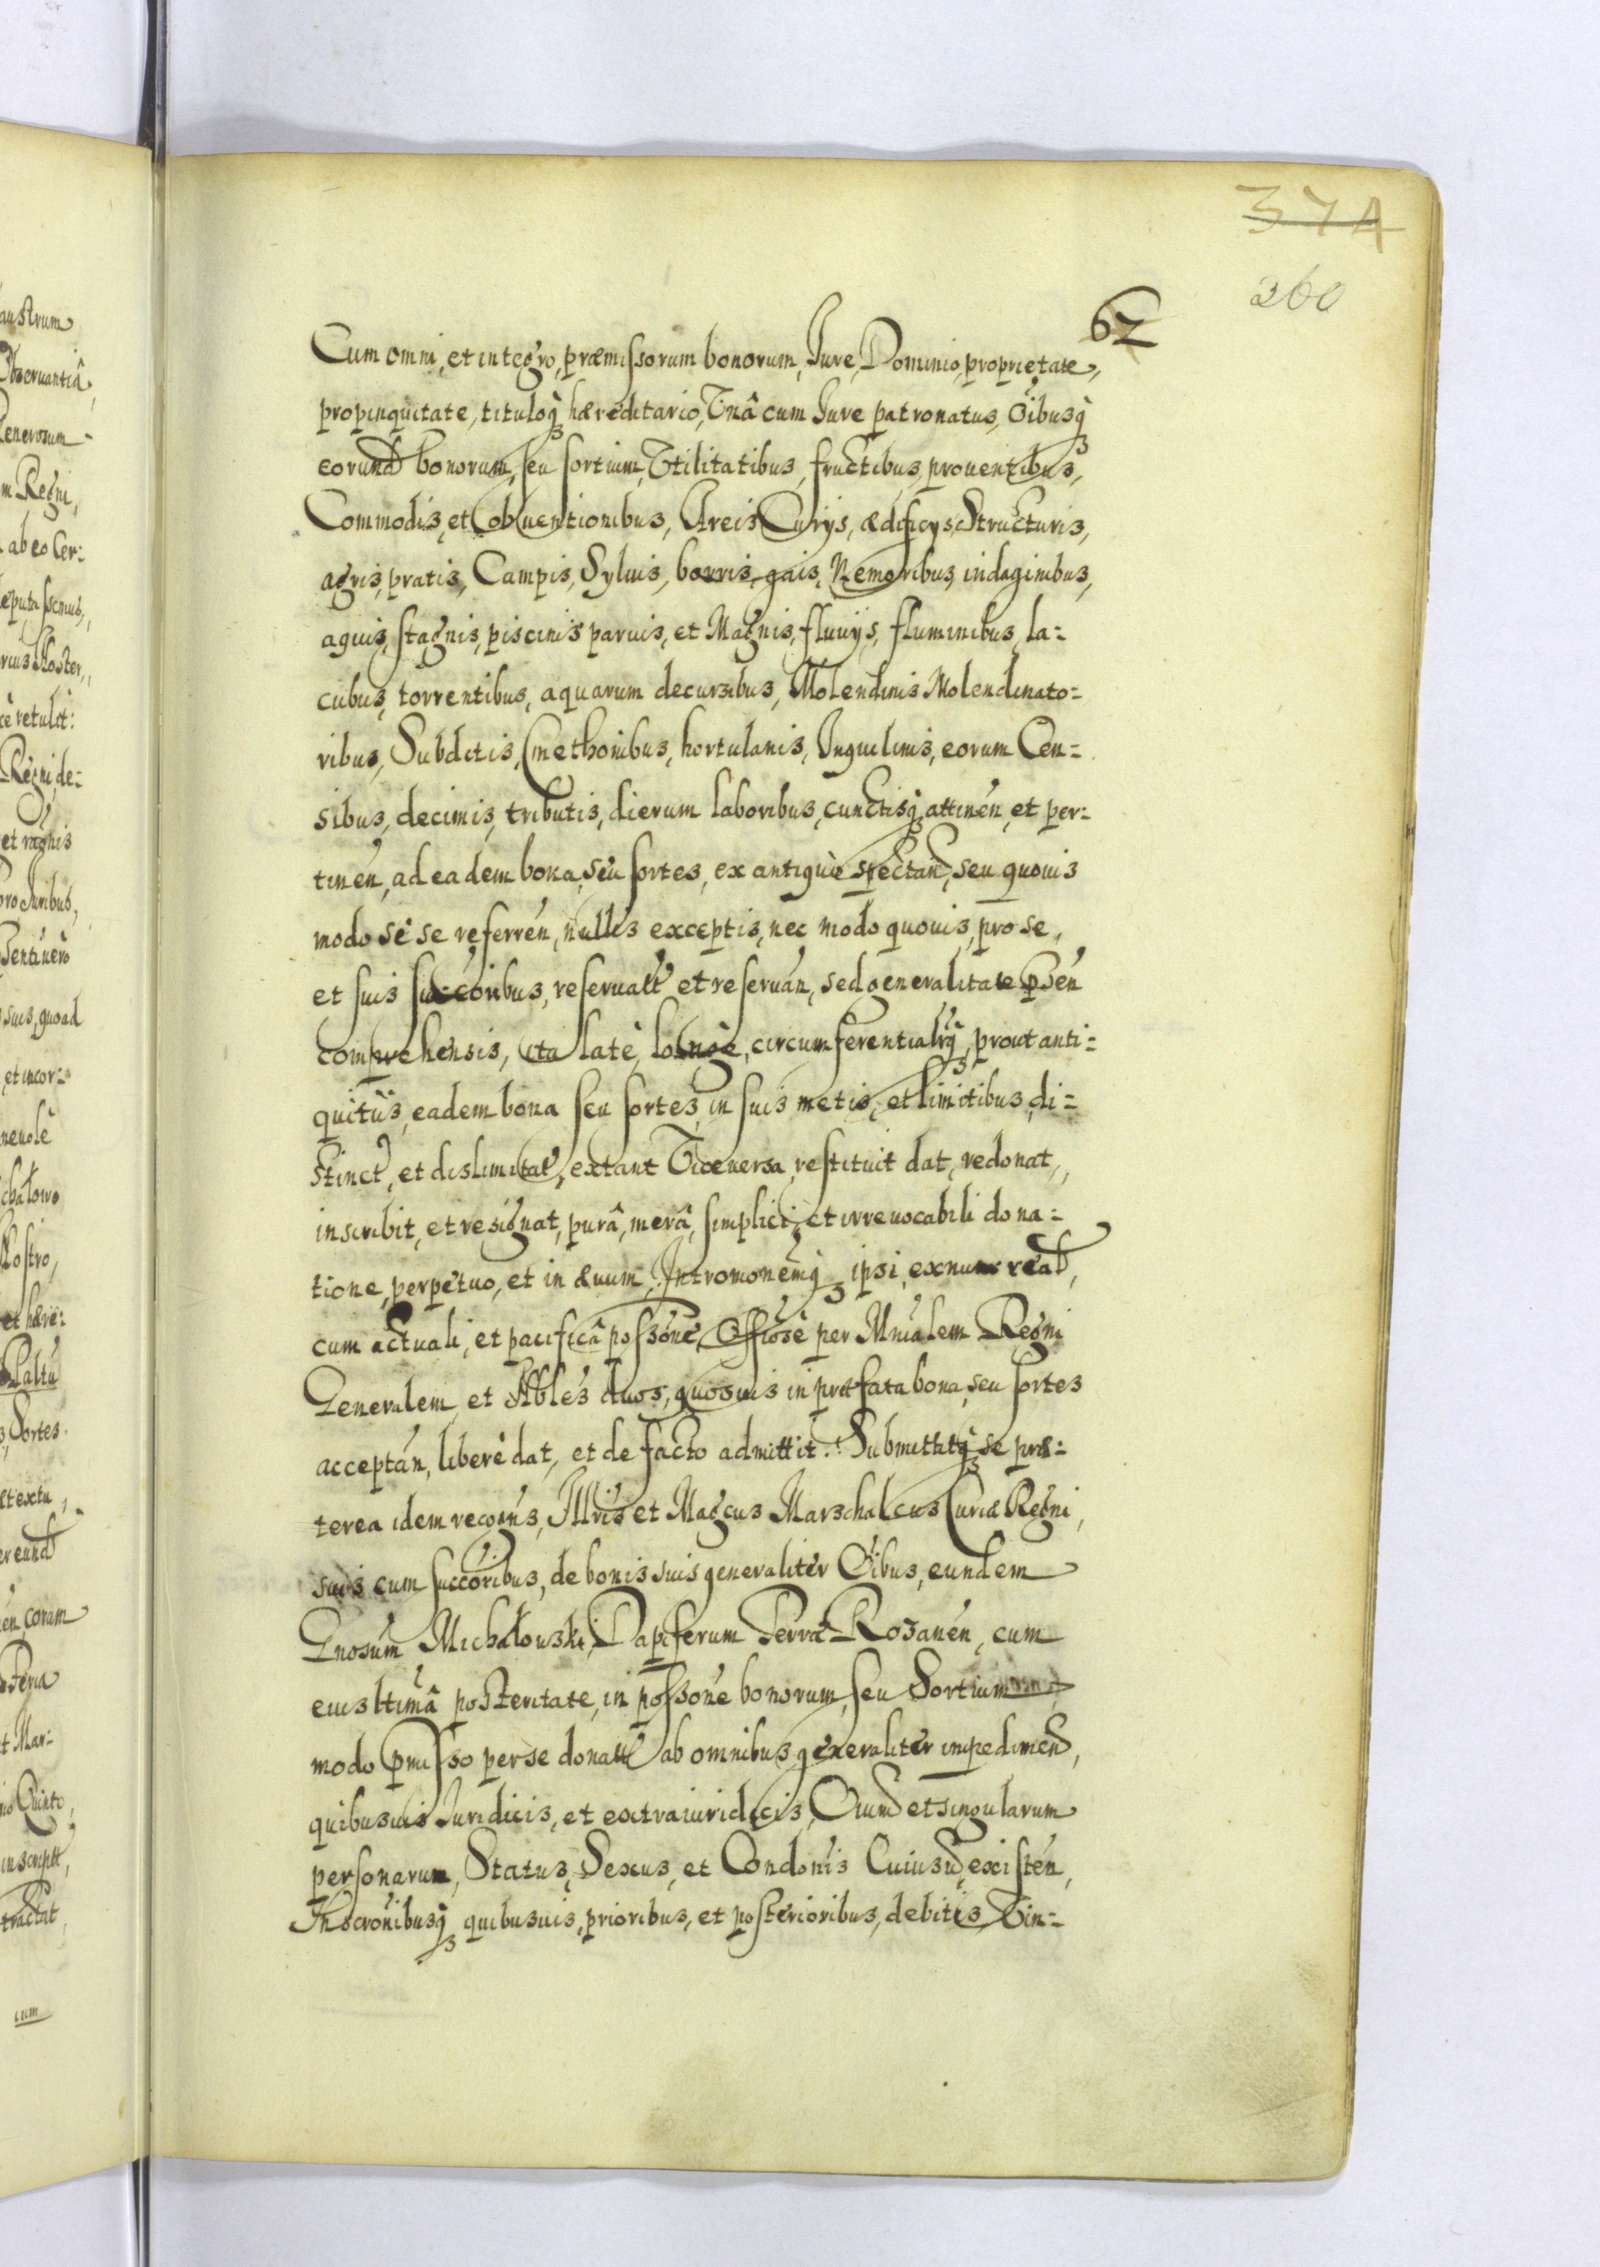 374
260
62
Cum omni, et integro, præmissorum bonorum, Iure, Dominio, proprietate,
propinquitate, tituloq₃ hæreditario, Vnâ cum Iure patronatus, Oībusq₃
eorund bonorum, seu sortium, Vtilitatibus, fructibus, prouentibus,
Commodis, et obuentionibus, Areis Curijs, ædificijs Structuris,
agris, pratis, Campis, Syluis, borris, gais, Nemoribus, indaginibus,
aquis, stagnis, piscinis paruis, et Magnis, fluuijs, fluminibus, la=
cubus, torrentibus, aquarum decursibus, Molendinis Molendinato=
ribus, Subditis, Cmethonibus, hortulanis, Inquilinis, eorum Cen=
sibus, decimis, tributis, dierum laboribus, cunctisq₃ attinen̄, et per=
tinen̄, ad eadem bona, seu sortes, ex antiquo spectan̄, seu quouis
modo se se referren̄, nullis exceptis, nec modo quouis, pro se,
et suis succōribus, reseruatt et reseruan̄, sed generalitate p̄sen̄
comprehensis, ita latè, longè, circumferentialr̄q₃, prout anti=
quitùs, eadem bona seu sortes, in suis metis, et limitibus, di=
stinct, et dislimitat, extant Viceuersa, restituit dat, redonat,
inscribit, et resignat, purâ, merâ, simplici, et irreuocabili dona=
tione, perpetuo, et in æuum, Intromōnemq₃ ipsi, ex nunc reat,
cum actuali, et pacificâ possōne, Offīose per Mn̄ialem Regni
Generalem, et Nbles duos, quosuis in præfata bona, seu sortes
acceptan̄, liberè dat, et de facto admittit. Submittitq₃ se præ=
terea idem recogn̄s, Illr̄is et Magcus Marschalcus Curiæ Regni,
suis cum succōribus, de bonis suis generaliter Oībus, eundem
Gnosum Michałouski, Dapiferum Terræ Rozanen̄, cum
eius ltimâ posteritate, in possōne bonorum, seu Sortium
modo p̄misso per se donatt ab omnibus generaliter impedimen̄,
quibusuis Iuridicis, et extraiuridicis, Oium et singularum
personarum, Status, Sexus, et Condōnis Cuiusuis, existen̄,
Inscrōnibusq₃ quibusuis, prioribus, et posterioribus, debitis Vin=